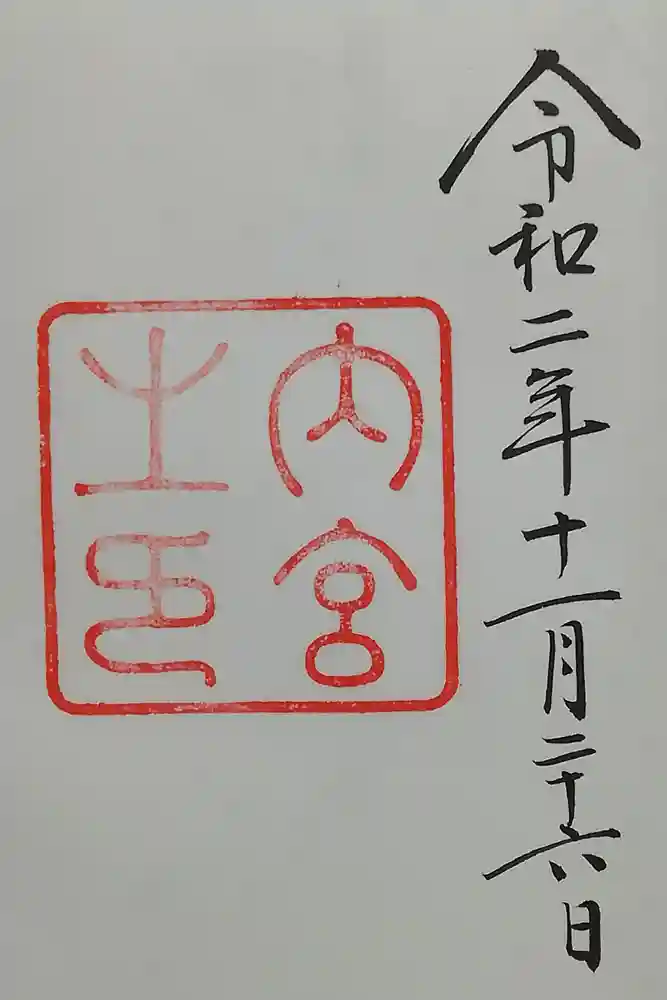 令和二年十一月二十六日
内宮
之印